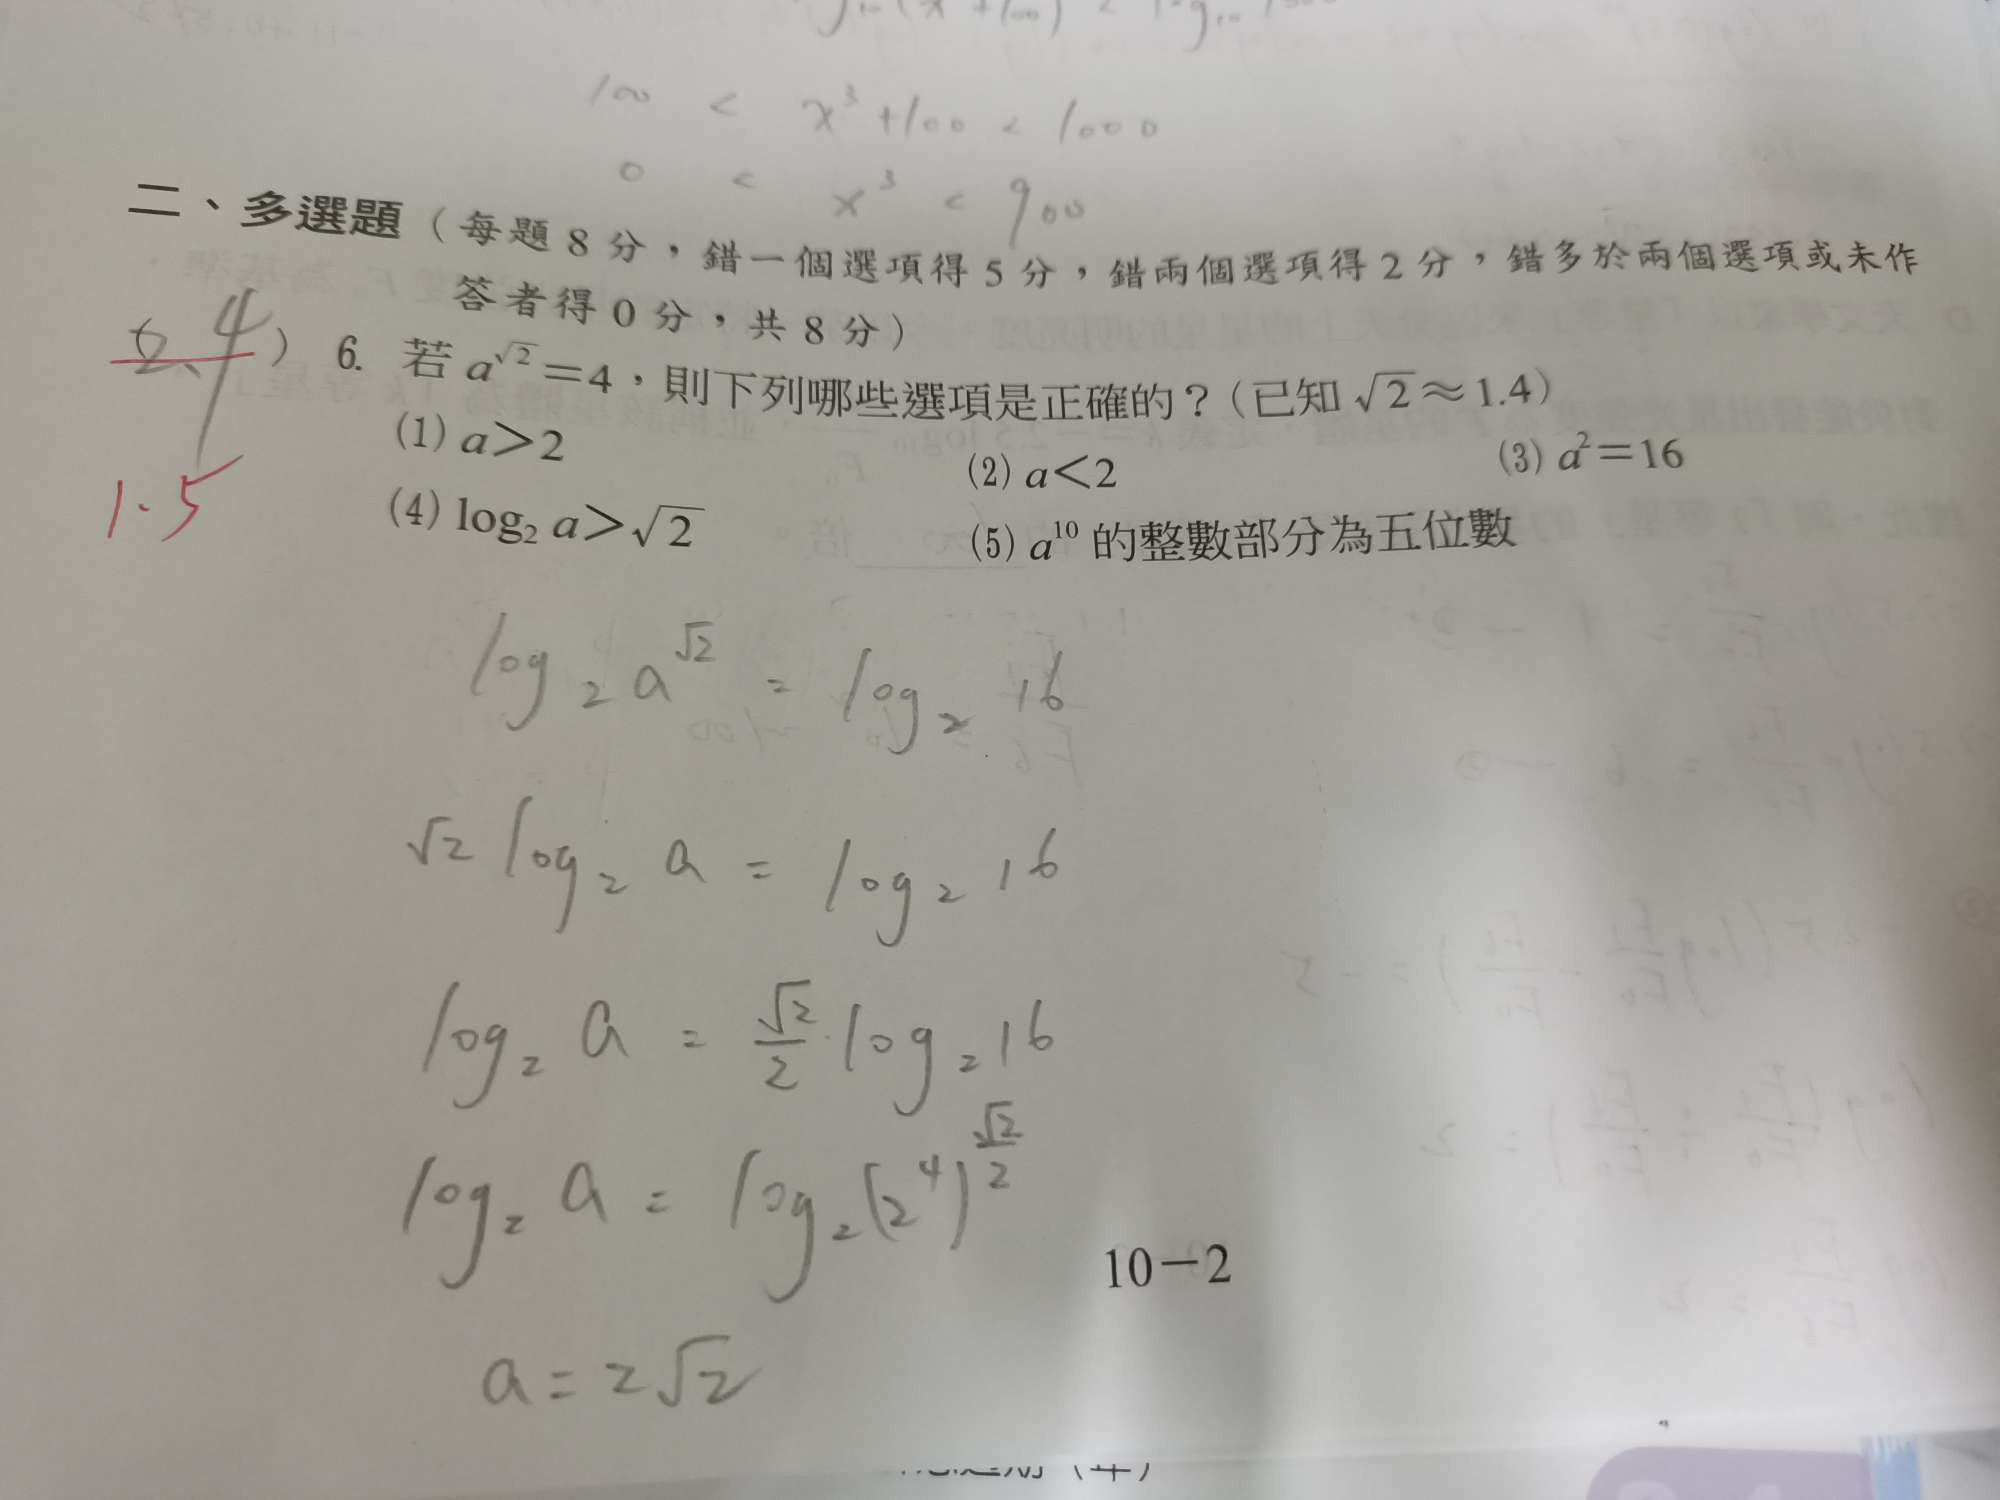 100 < x³+100 < 1000
0 < x³ < 900
二、多選題（每題 8 分，錯一個選項得 5 分，錯兩個選項得 2 分，錯多於兩個選項或未作
答者得 0 分，共 8 分）
4 ) 6. 若 a^√2=4，則下列哪些選項是正確的？（已知 √2≈1.4）
(1) a>2 (2) a<2 (3) a²=16
1.5
(4) log₂ a>√2 (5) a¹⁰ 的整數部分為五位數
log₂ a^√2 = log₂ 16
√2 log₂ a = log₂ 16
log₂ a = √2/2 · log₂ 16
log₂ a = log₂ (2⁴)^(√2/2)
10－2
a = 2√2